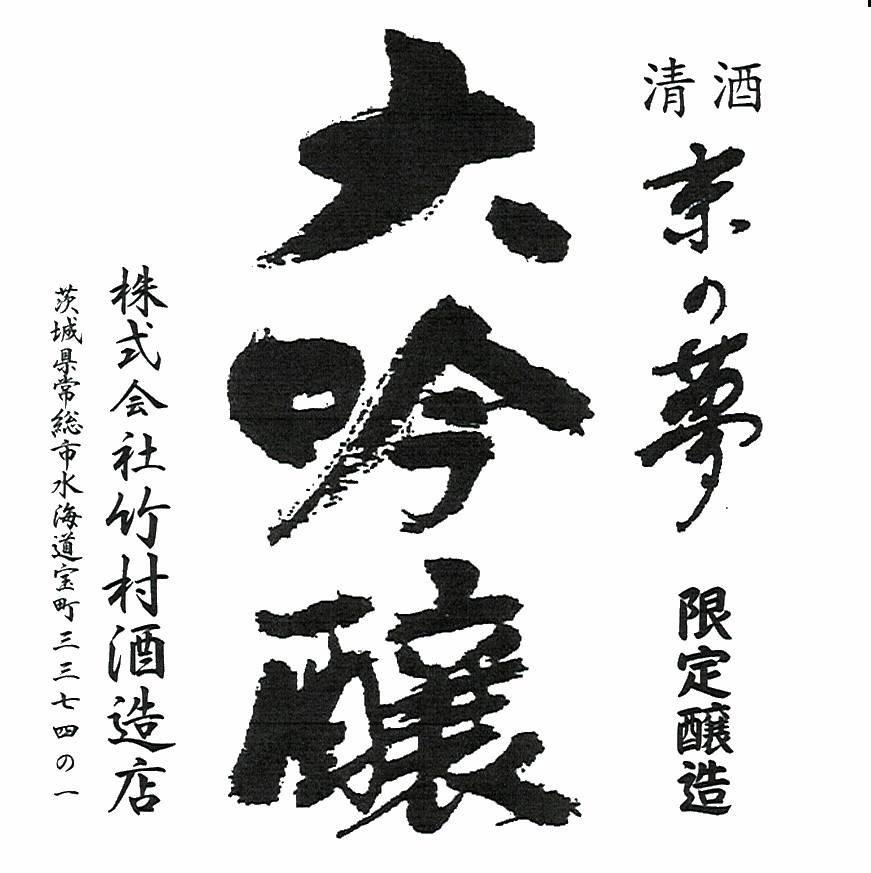 清酒
京の夢
限定醸造
大吟醸
株式会社竹村酒造店
茨城県常総市水海道宝町三三七四の一